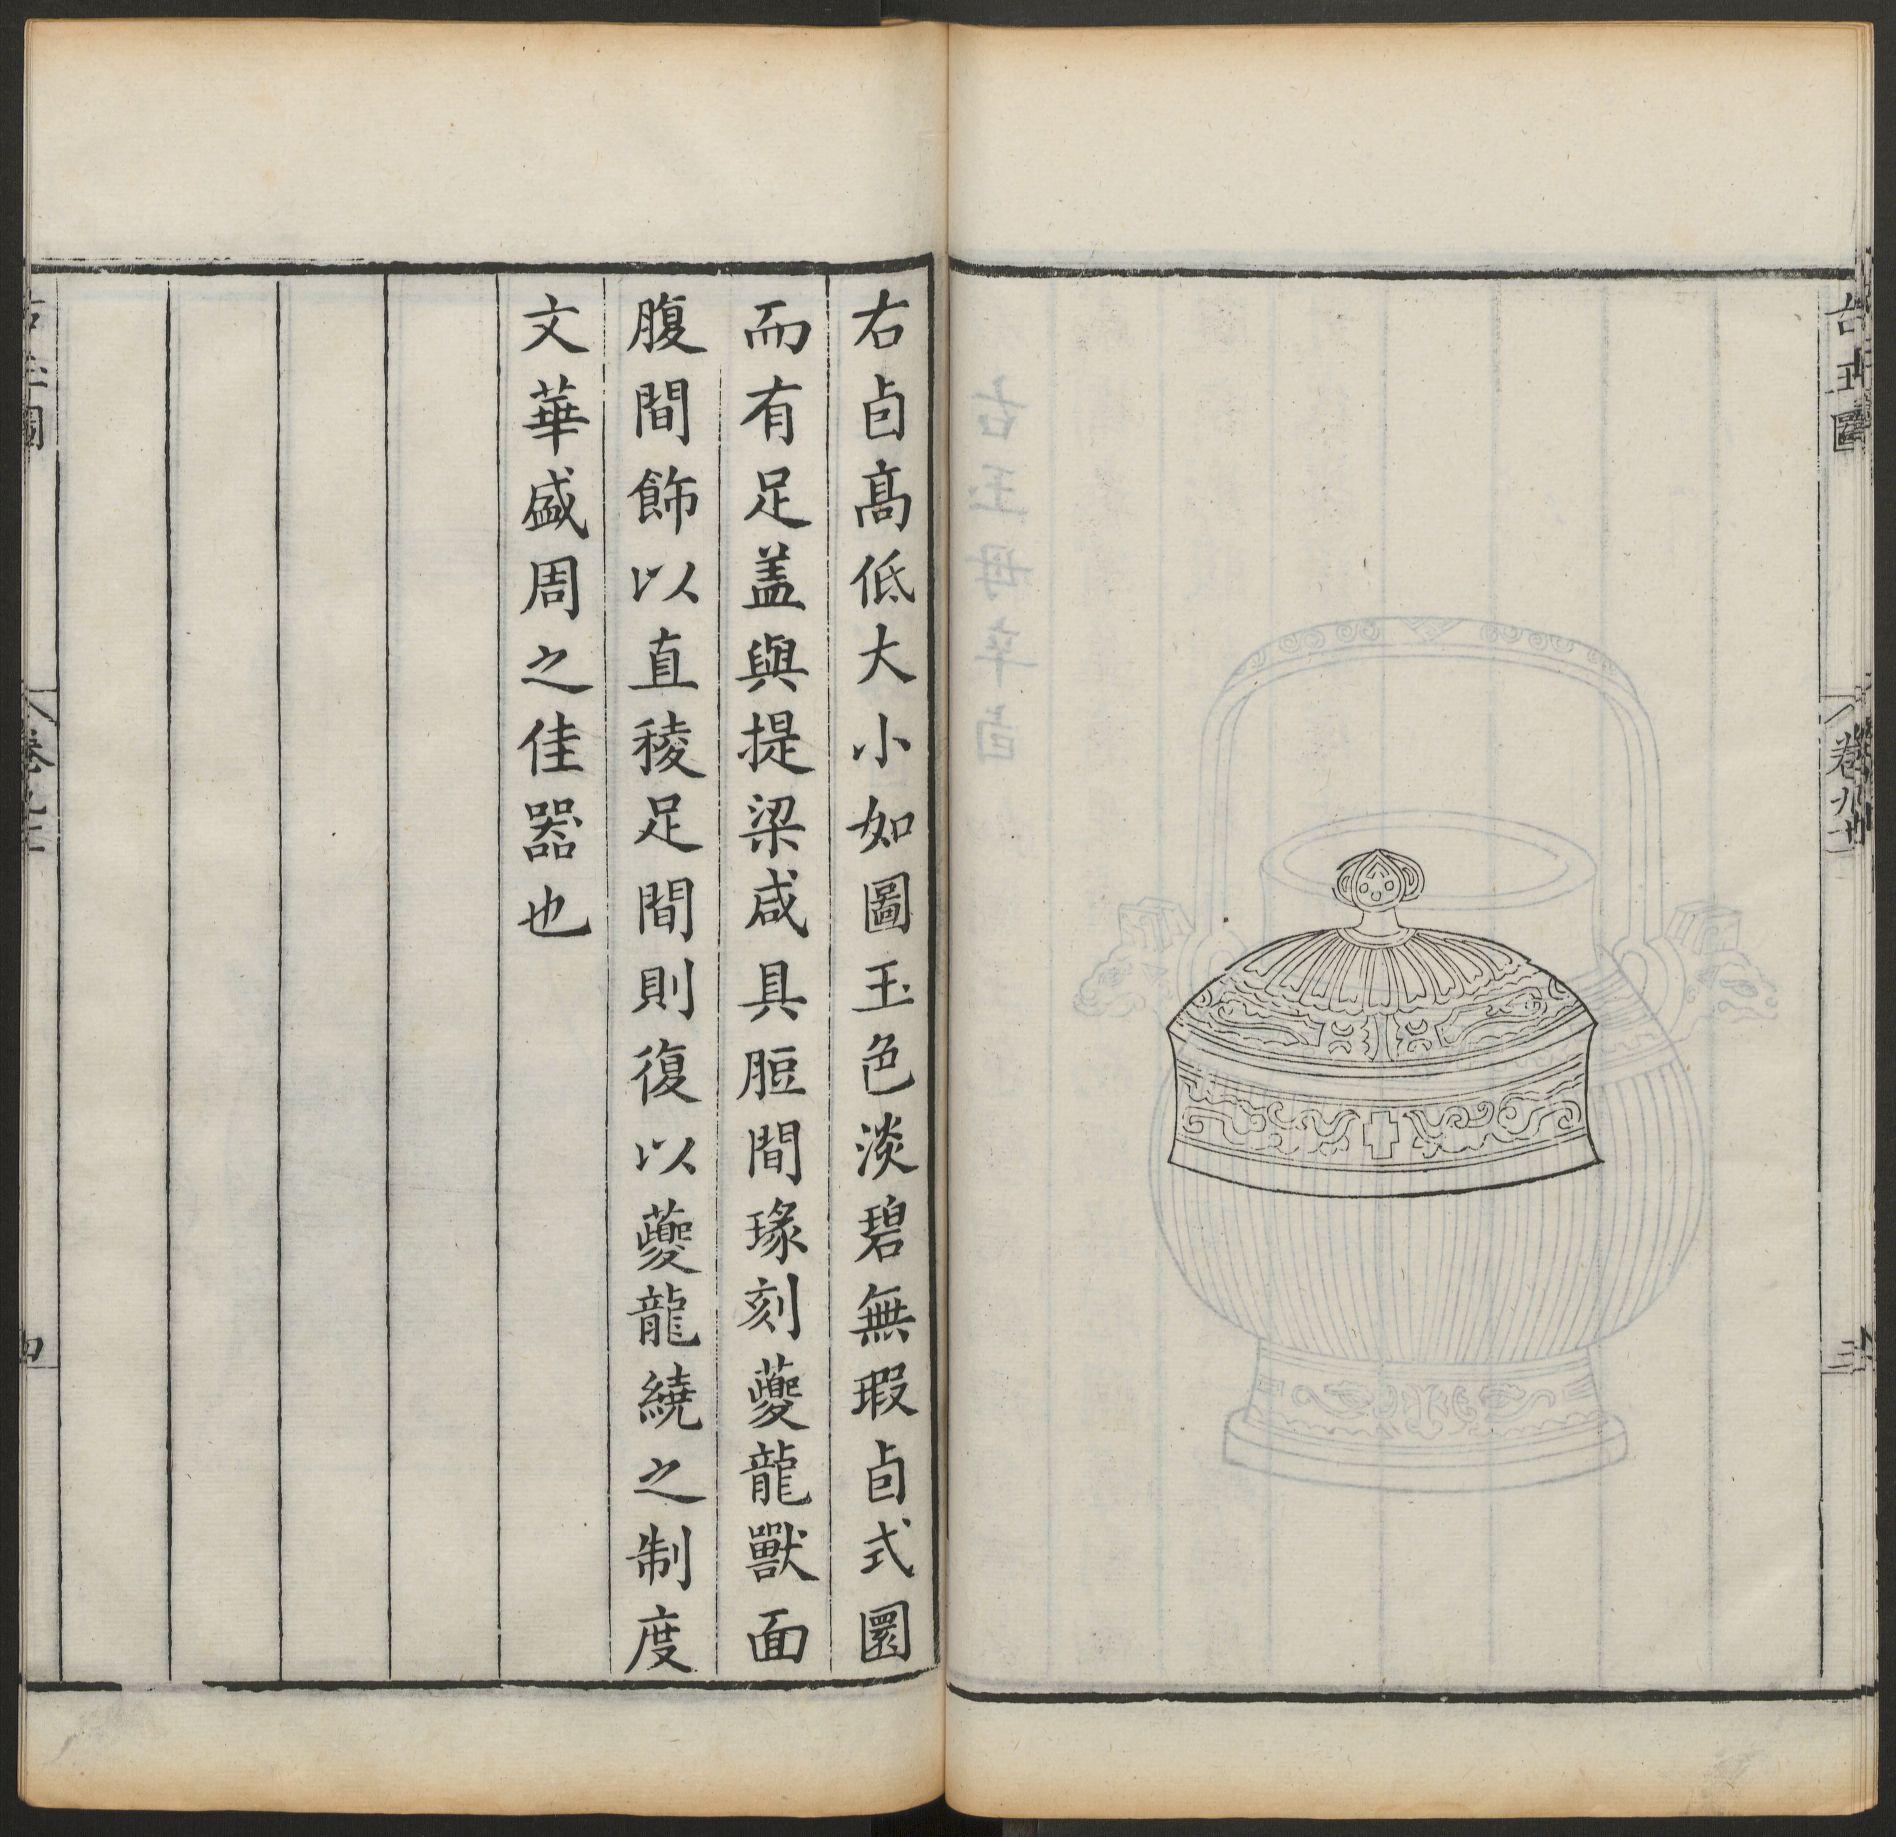 古玉圖
卷九十
三
右卣髙低大小如圖玉色淡碧無瑕卣式圜
而有足盖與提梁咸具脰間瑑刻夔龍獸面
腹間飾以直稜足間則復以夔龍繞之制度
文華盛周之佳器也
卷九十
四